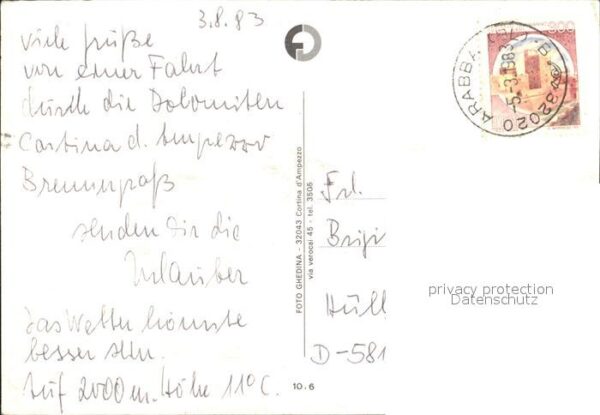 3.8.83
viele Grüße
von einer Fahrt
durch die Dolomiten
Cortina d. Ampezzo
Brennerpaß
senden Dir die
Urlauber
das Wetter könnte
besser sein.
Auf 2000 m. Höhe 11°C.
FOTO GHEDINA - 32043 Cortina d'Ampezzo
via verocai 45 - tel. 3505
10.6
300
ARABBA
-5.-3.1983
32020
Frl.
Brigi
Hüll
D-581
privacy protection
Datenschutz